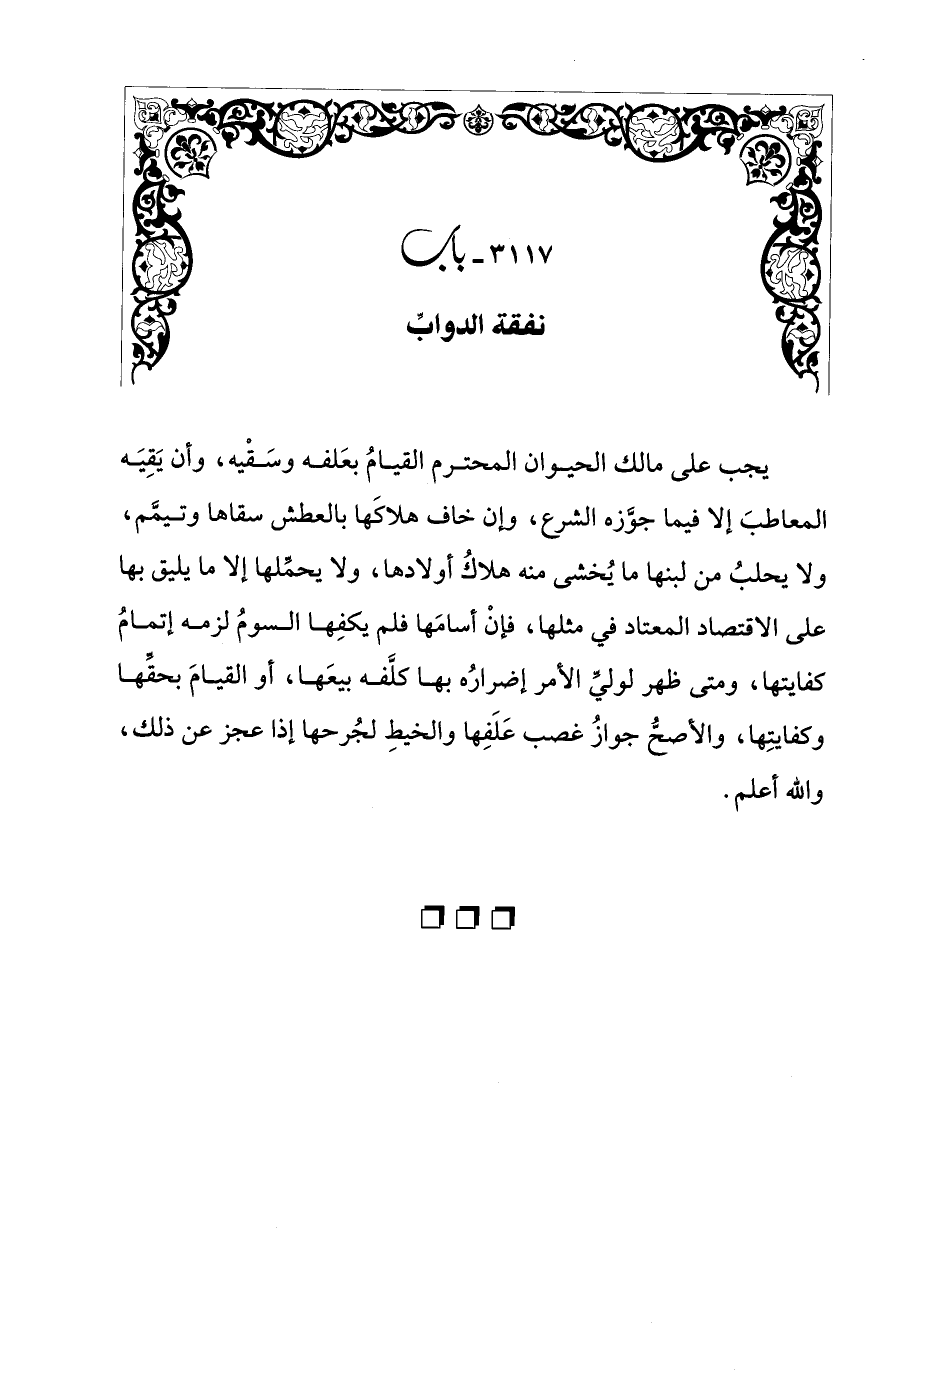 ٣١١٧ - باب
نفقة الدوابِّ
يجب على مالك الحيوان المحترم القيامُ بعَلفه وسَقْيه، وأن يَقِيَه
المعاطبَ إلا فيما جوَّزه الشرع، وإن خاف هلاكَها بالعطش سقاها وتيمَّم،
ولا يحلبُ من لبنها ما يُخشى منه هلاكُ أولادها، ولا يحمِّلها إلا ما يليق بها
على الاقتصاد المعتاد في مثلها، فإنْ أسامَها فلم يكفِها السومُ لزمه إتمامُ
كفايتها، ومتى ظهر لوليِّ الأمر إضرارُه بها كلَّفه بيعَها، أو القيامَ بحقِّها
وكفايتِها، والأصحُّ جوازُ غصب عَلَفِها والخيطِ لجُرحها إذا عجز عن ذلك،
والله أعلم.